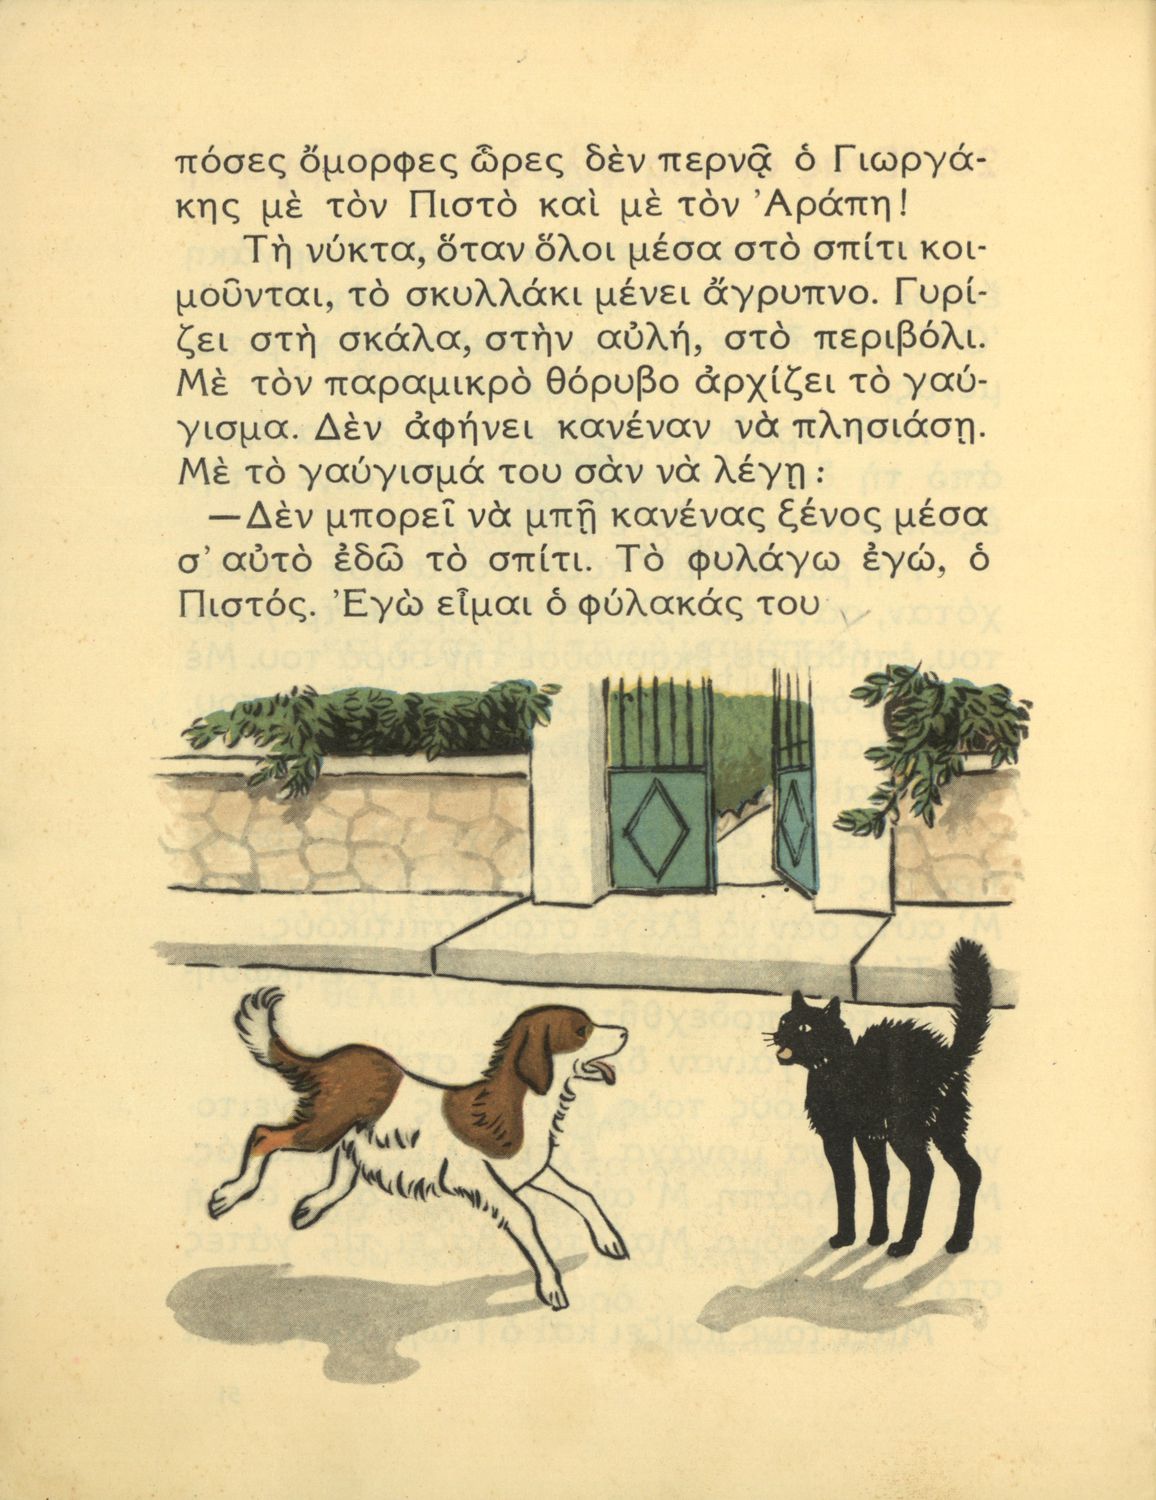 πόσες ὄμορφες ὧρες δὲν περνᾷ ὁ Γιωργά-
κης μὲ τὸν Πιστὸ καὶ μὲ τὸν Ἀράπη!
Τὴ νύκτα, ὅταν ὅλοι μέσα στὸ σπίτι κοι-
μοῦνται, τὸ σκυλλάκι μένει ἄγρυπνο. Γυρί-
ζει στὴ σκάλα, στὴν αὐλή, στὸ περιβόλι.
Μὲ τὸν παραμικρὸ θόρυβο ἀρχίζει τὸ γαύ-
γισμα. Δὲν ἀφήνει κανέναν νὰ πλησιάσῃ.
Μὲ τὸ γαύγισμά του σὰν νὰ λέγῃ:
—Δὲν μπορεῖ νὰ μπῇ κανένας ξένος μέσα
σ' αὐτὸ ἐδῶ τὸ σπίτι. Τὸ φυλάγω ἐγώ, ὁ
Πιστός. Ἐγὼ εἶμαι ὁ φύλακάς του